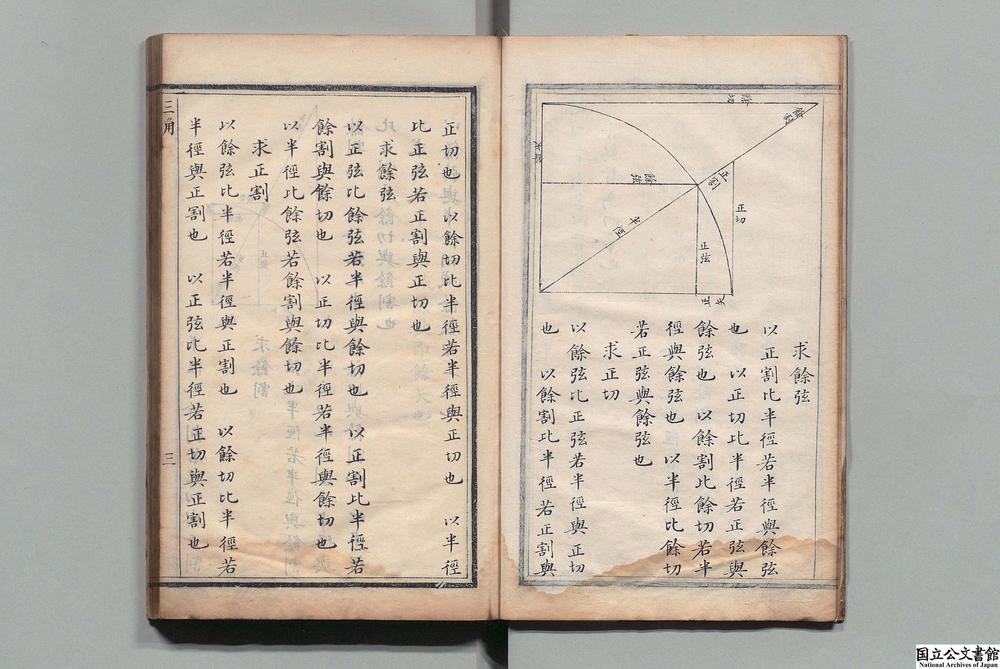 餘切
餘割
餘弦
正割
正切
半徑
正弦
正矢
求餘弦
以正割比半徑若半徑與餘弦
也　以正切比半徑若正弦與
餘弦也　以餘割比餘切若半
徑與餘弦也　以半徑比餘切
若正弦與餘弦也
求正切
以餘弦比正弦若半徑與正切
也　以餘割比半徑若正割與
正切也　以餘切比半徑若半徑與正切也　以半徑
比正弦若正割與正切也
求餘弦
以正弦比餘弦若半徑與餘切也　以正割比半徑若
餘割與餘切也　以正切比半徑若半徑與餘切也
以半徑比餘弦若餘割與餘切也
求正割
以餘弦比半徑若半徑與正割也　以餘切比半徑若
半徑與正割也　以正弦比半徑若正切與正割也
三角
三
国立公文書館
National Archives of Japan